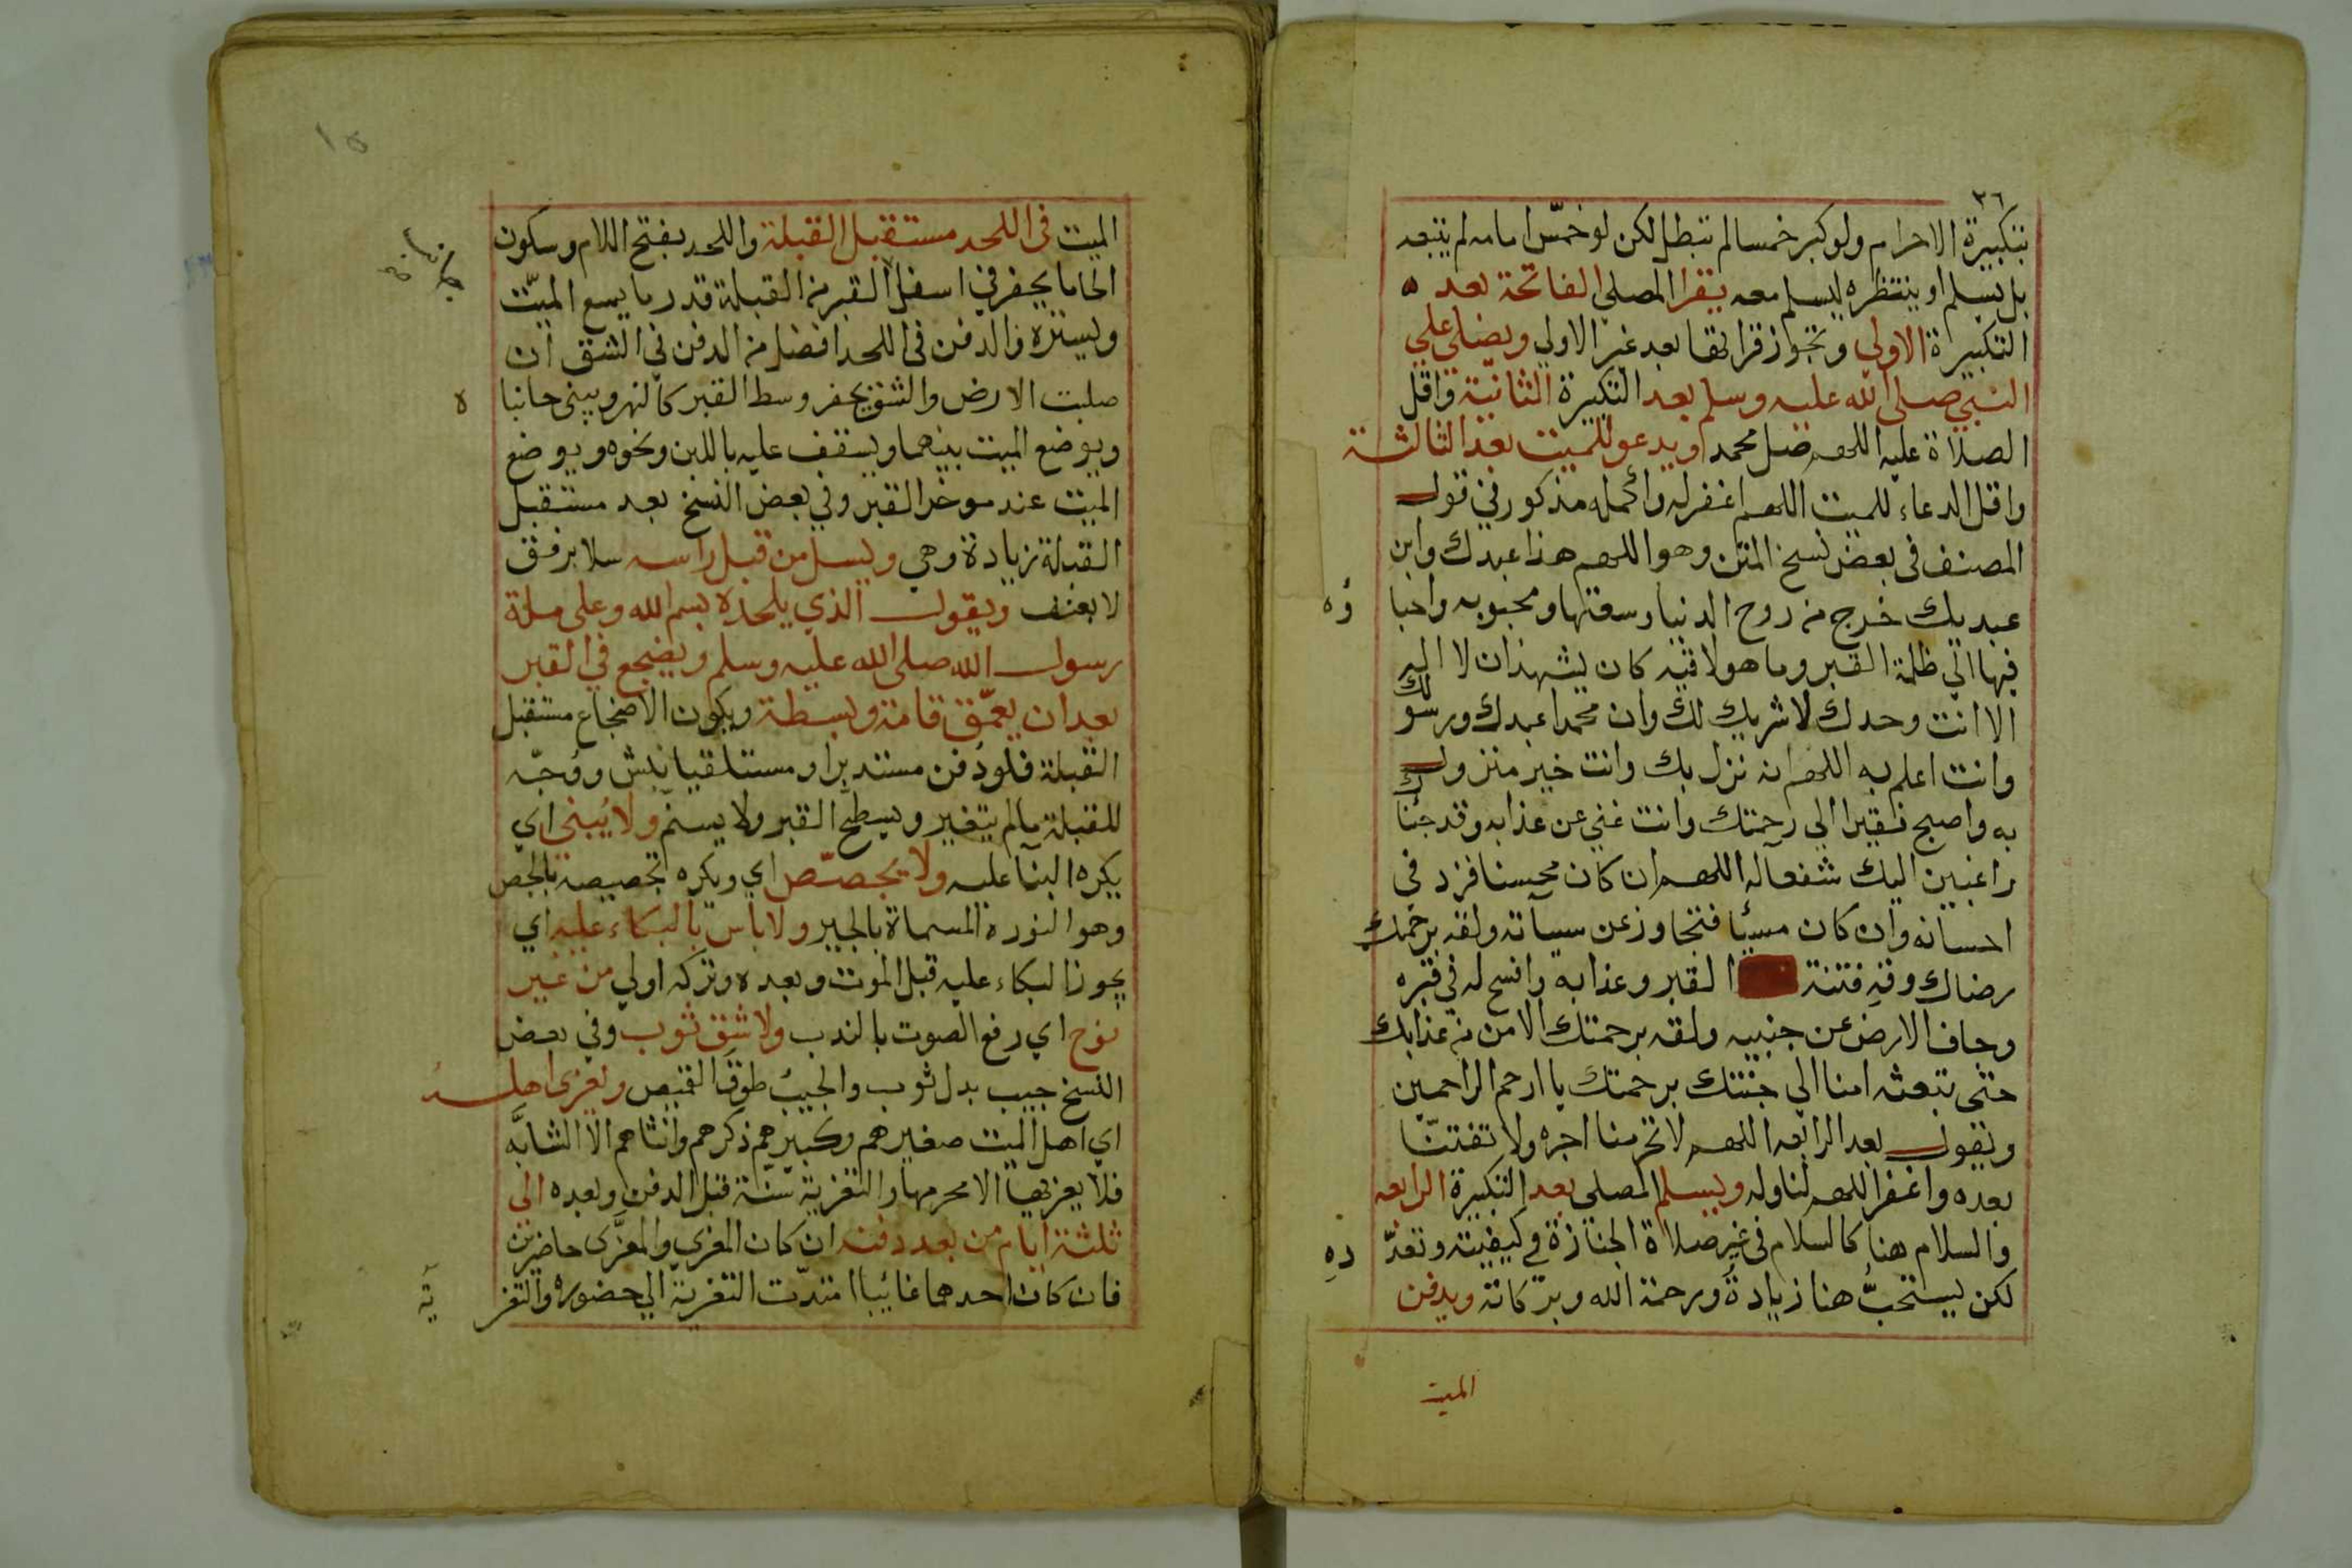 ٣٦
بتكبيرة الاحرام ولو كبر خمسا لم تبطل لكن لو خمّس امامه لم يتبعه
بل يسلم او ينتظره ليسلم معه يقرا المصلي الفاتحة بعد ه
التكبيرة الاولي وتجوز قراتها بعد غير الاولي ويصلي علي
النبي صلى الله عليه وسلم بعد التكبيرة الثانية واقل
الصلاة عليه اللهم صل محمد او يدعو للميت بعد الثالثة
واقل الدعاء للميت اللهم اغفر له واكمله مذكور في قول
المصنف في بعض نسخ المتن وهو اللهم هذا عبدك وابن
عبديك خرج من روح الدنيا وسعتها ومحبوبه واحبا ؤه
فيها الي ظلمة القبر وما هو لاقيه كان يشهد ان لا اله
الا انت وحدك لا شريك لك وان محمدا عبدك ورسولك
وانت اعلم به اللهم انه نزل بك وانت خير منزول
به واصبح فقيرا الي رحمتك وانت غني عن عذابه وقد جئناك
راغبين اليك شفعآله اللهم ان كان محسنا فزد في
احسانه وان كان مسيأ فتجاوز عن سيآته ولقه برحمتك
رضاك وقه فتنة القبر وعذابه وافسح له في قبره
وجاف الارض عن جنبيه ولقه برحمتك الامن من عذابك
حتى تبعثه امنا الي جنتك برحمتك يا ارحم الراحمين
ويقول بعد الرابعه اللهم لا تحرمنا اجره ولا تفتنّا
بعده واغفر اللهم لنا وله ويسلم المصلى بعد التكبيرة الرابعه
والسلام هنا كالسلام في غير صلاة الجنازة في كيفيته وتعدّ ده
لكن يستحبّ هنا زيادةُ ورحمة الله وبركاته ويدفن
الميت
١٥
الميت في اللحد مستقبل القبلة واللحد بفتح اللام وسكون
الحا ما يحفر في اسفل القبر من القبلة قدر ما يسع الميّت
ويستره والدفن في اللحد افضل من الدفن في الشق ان
صلبت الارض والشق يحفر وسط القبر كالنهر ويبنى جانبا ه
ويوضع الميت بينهما ويسقف عليه باللبن ونحوه ويوضع
الميت عند موخر القبر وفي بعض النسخ بعد مستقبل
القبلة زيادة وهي ويسل من قبل راسه سلا برفق
لا بعنف ويقول الذي يلحده بسم الله وعلى ملة
رسول الله صلى الله عليه وسلم ويضجع في القبر
بعد ان يعمّق قامة وبسطة ويكون الاضجاع مستقبل
القبلة فلو دُفن مستدبرا او مستلقيا نبش ووُجّه
للقبلة مالم يتغير ويسطّح القبر ولا يسنّم ولا يُبنى اي
يكره البنآ عليه ولا يجصّص اي ويكره تجصيصه بالجص
وهو النورة المسماة بالجير ولا باس بالبكاء عليه اي
يجوز البكاء عليه قبل الموت وبعده وتركه اولي من غير
نوح اي رفع الصوت بالندب ولا شق ثوب وفي بعض
النسخ جيب بدل ثوب والجيبُ طوقَ القميص ويعزى اهله
اي اهل الميت صغيرهم وكبيرهم ذكرهم وانثاهم الا الشابّه
فلا يعزيها الا محرمها والتعزية سنة قبل الدفن وبعده الى
ثلثة ايام من بعد دفنه ان كان المعزي والمعزَّى حاضرين
فان كان احدهما غائبا امتدّت التعزية الي حضوره والتعز ية